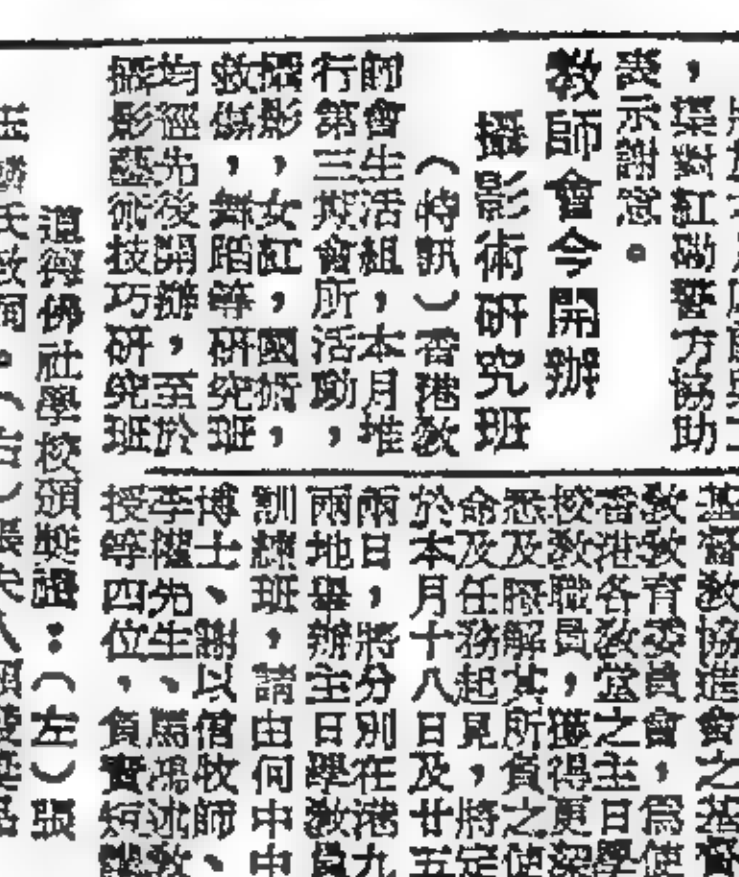 ，渠對紅磡警方協助
表示謝意。
教師會今開辦
攝影術研究班
（特訊）香港教
師會生活組，本月推
行第三期會所活動，
攝影，女紅，國術，
救傷，舞蹈等研究班
均經先後開辦，至於
攝影藝術技巧研究班
基督教協進會之基
教教育委員會，為使
香港各教堂之主日學
校教職員，獲得更深
悉及瞭解其所負之使
命及任務起見，將定
於本月十八日及廿五
兩日，將分別在港九
兩地舉辦主日學教員
訓練班，請由何中中
博士、謝以信牧師、
李 先生、馬鴻述教
授等四位，負責短
道德佛社學校頒獎禮：（左）張